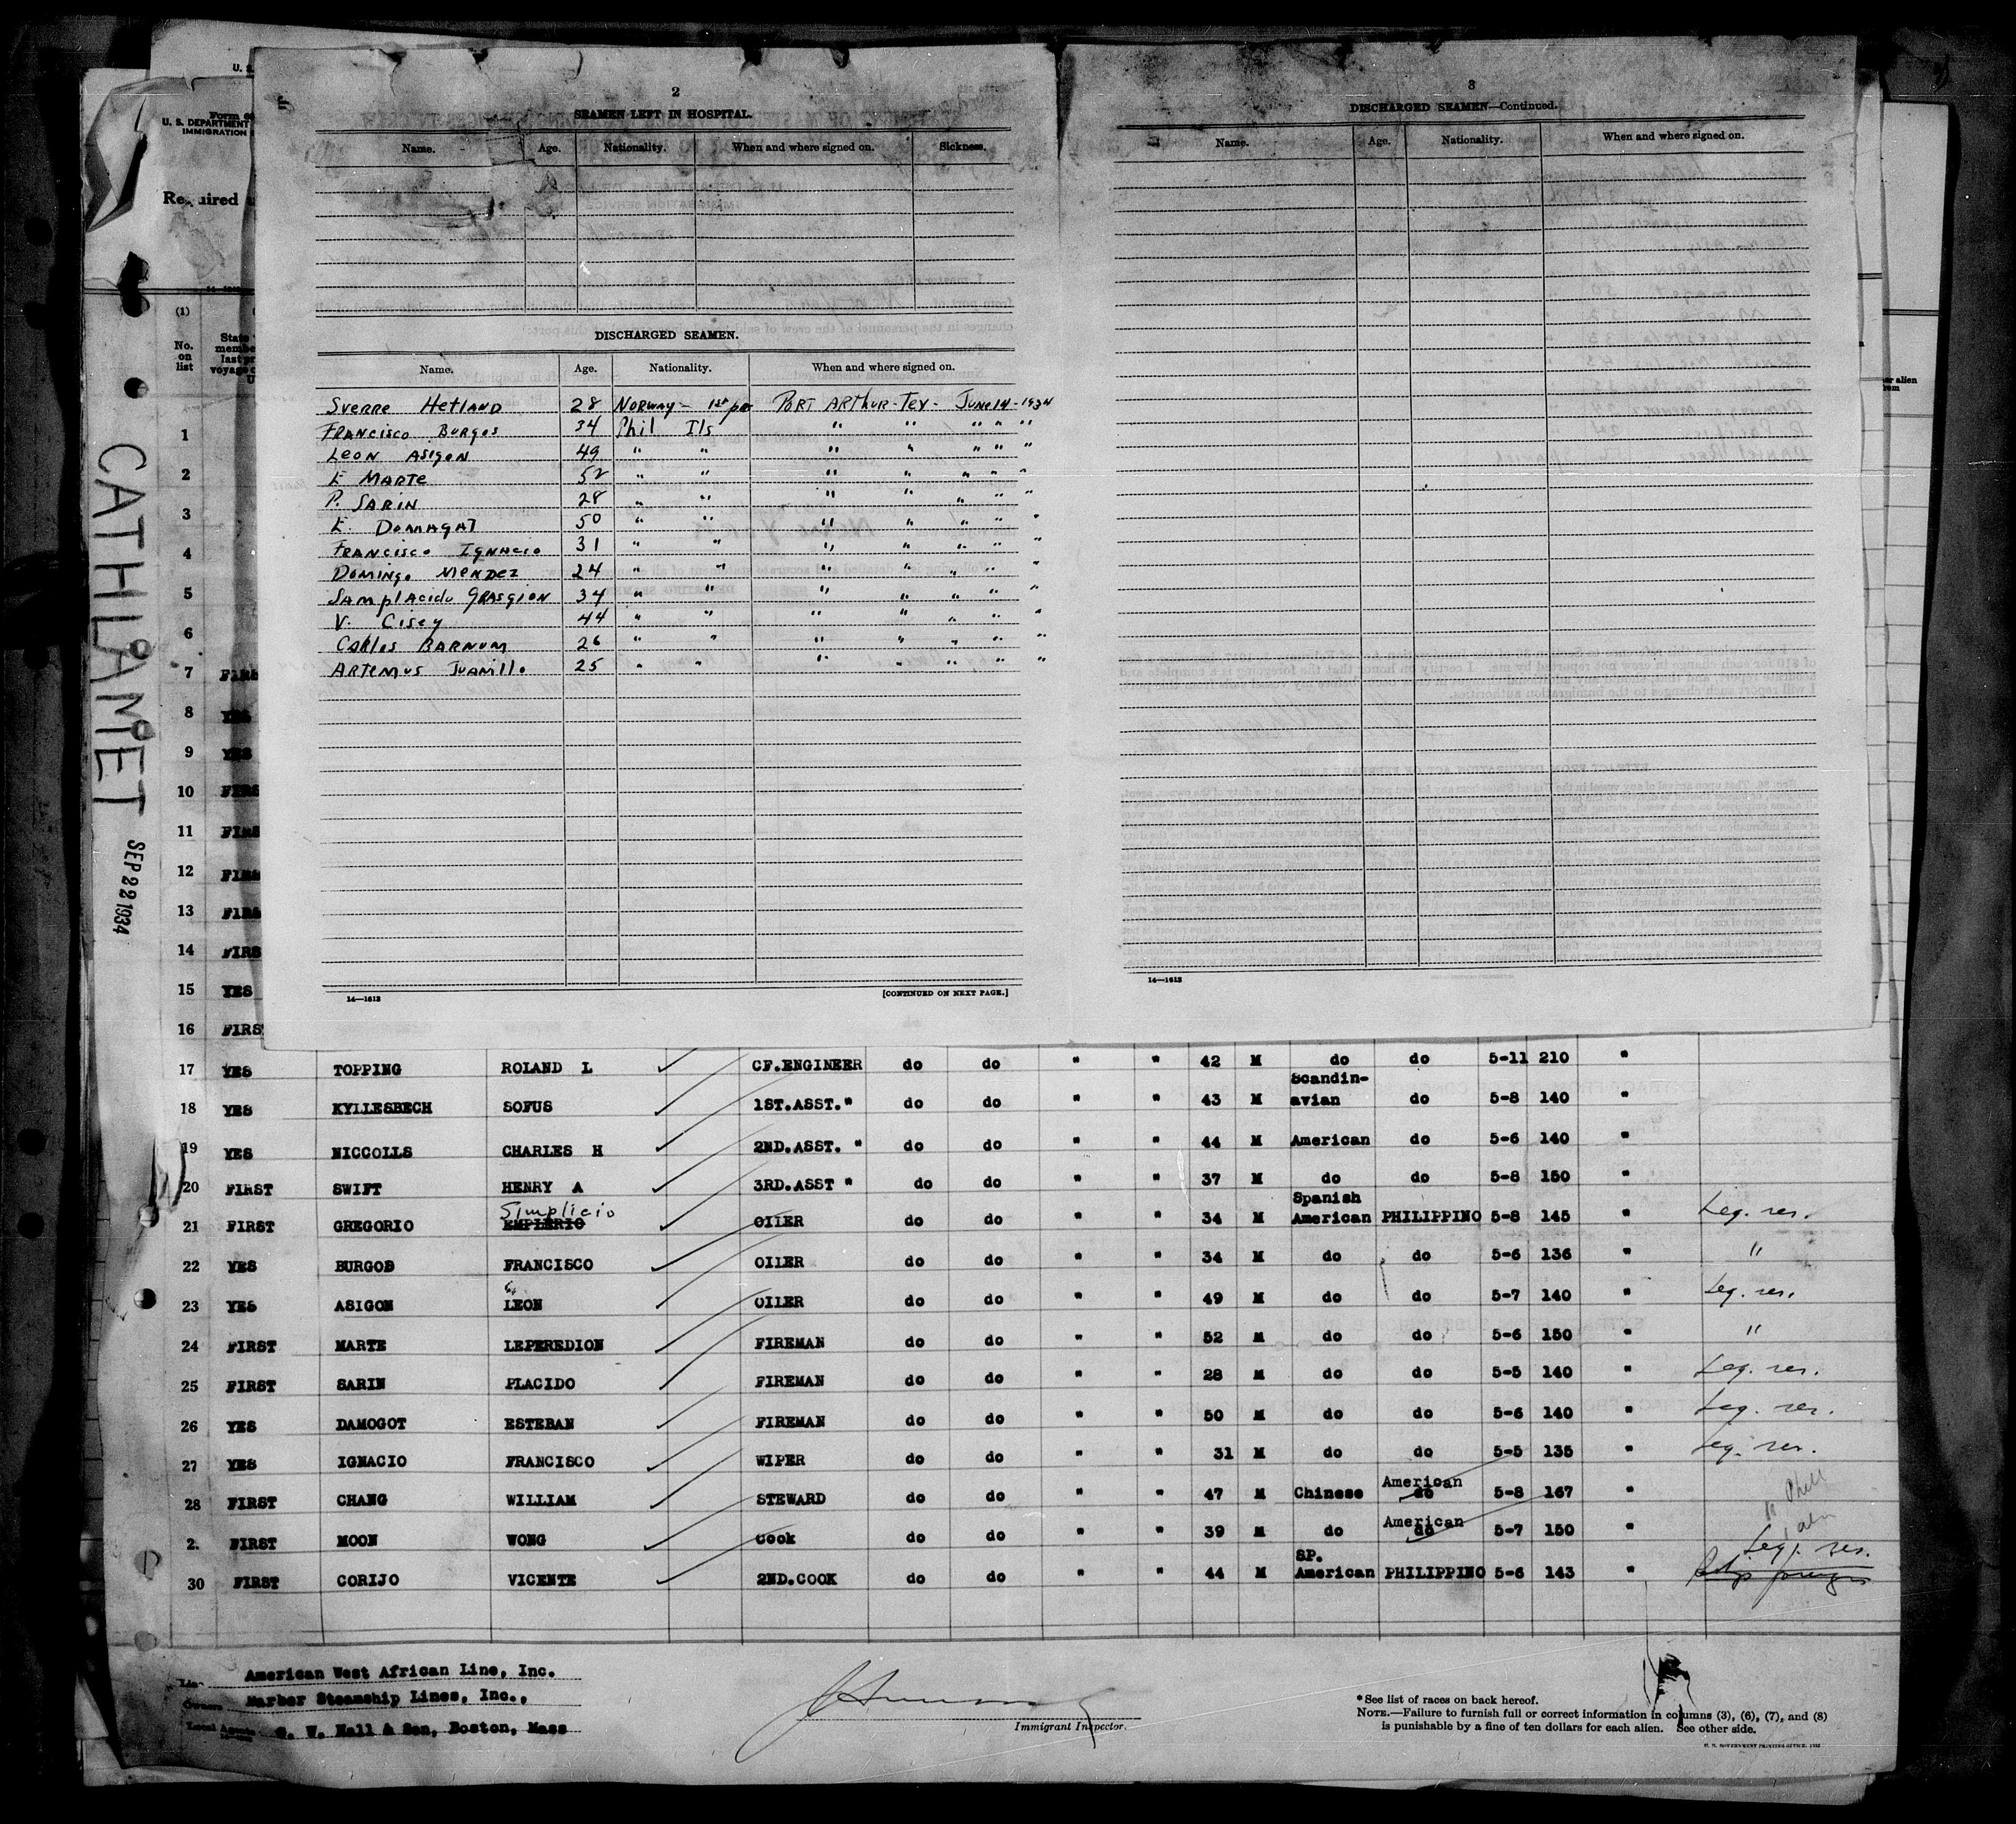 2
SEAMEN LEFT IN HOSPITAL.
Name. Age. Nationality. When and where signed on. Sickness.
DISCHARGED SEAMEN.
Name. Age. Nationality. When and where signed on.
Sverre Hetland 28 Norway - 1st Port Arthur - Tex - June 14 - 1934
Francisco Burgos 34 Phil Ils " " " " "
Leon Asigon 49 " " " " " " "
E Marte 52 " " " " " " "
P. Sarin 28 " " " " " " "
E. Domagat 50 " " " " " " "
Francisco Ignacio 31 " " " " " " "
Domingo Mendez 24 " " " " " " "
Samplacido Grasgion 34 " " " " " " "
V. Cisey 44 " " " " " " "
Carlos Barnum 26 " " " " " " "
Artemus Juanillo 25 " " " " " " "
14—1613
[CONTINUED ON NEXT PAGE.]
3
DISCHARGED SEAMEN—Continued.
Name. Age. Nationality. When and where signed on.
14—1613
U. S. DEPARTMENT
IMMIGRATION
Required
(1)
No.
on
list
State
1
2
3
4
5
6
7
8 YES
9 YES
10
11
12
13
14
15 YES
16
CATHLAMET
SEP 22 1934
17 YES TOPPING ROLAND L CF.ENGINEER do do " " 42 M do do 5-11 210 "
18 YES KYLLESBECH SOFUS 1ST.ASST." do do " " 43 M Scandin-avian do 5-8 140 "
19 YES NICCOLLS CHARLES H 2ND.ASST. " do do " " 44 M American do 5-6 140 "
20 FIRST SWIFT HENRY A 3RD.ASST " do do " " 37 M do do 5-8 150 "
21 FIRST GREGORIO Simplicio EMPLERIO OILER do do " " 34 M Spanish American PHILIPPINO 5-8 145 " Leg. res.
22 YES BURGOD FRANCISCO OILER do do " " 34 M do do 5-6 136 " "
23 YES ASIGON LEON OILER do do " " 49 M do do 5-7 140 " Leg. res.
24 FIRST MARTE LEPEREDION FIREMAN do do " " 52 M do do 5-6 150 " "
25 FIRST SARIN PLACIDO FIREMAN do do " " 28 M do do 5-5 140 " Leg. res.
26 YES DAMOGOT ESTEBAN FIREMAN do do " " 50 M do do 5-6 140 " Leg. res.
27 YES IGNACIO FRANCISCO WIPER do do " " 31 M do do 5-5 135 " Leg. res.
28 FIRST CHANG WILLIAM STEWARD do do " " 47 M Chinese American do 5-8 167 "
2. FIRST MOON WONG Cook do do " " 39 M do American do 5-7 150 "
30 FIRST CORIJO VICENTE 2ND.COOK do do " " 44 M SP. American PHILIPPINO 5-6 143 " Leg. res.
American West African Line, Inc.
Owners Barber Steamship Lines, Inc.,
Local Agents G. W. Hall & Son, Boston, Mass
Immigrant Inspector.
*See list of races on back hereof.
NOTE.—Failure to furnish full or correct information in columns (3), (6), (7), and (8)
is punishable by a fine of ten dollars for each alien. See other side.
U. S. GOVERNMENT PRINTING OFFICE: 1932